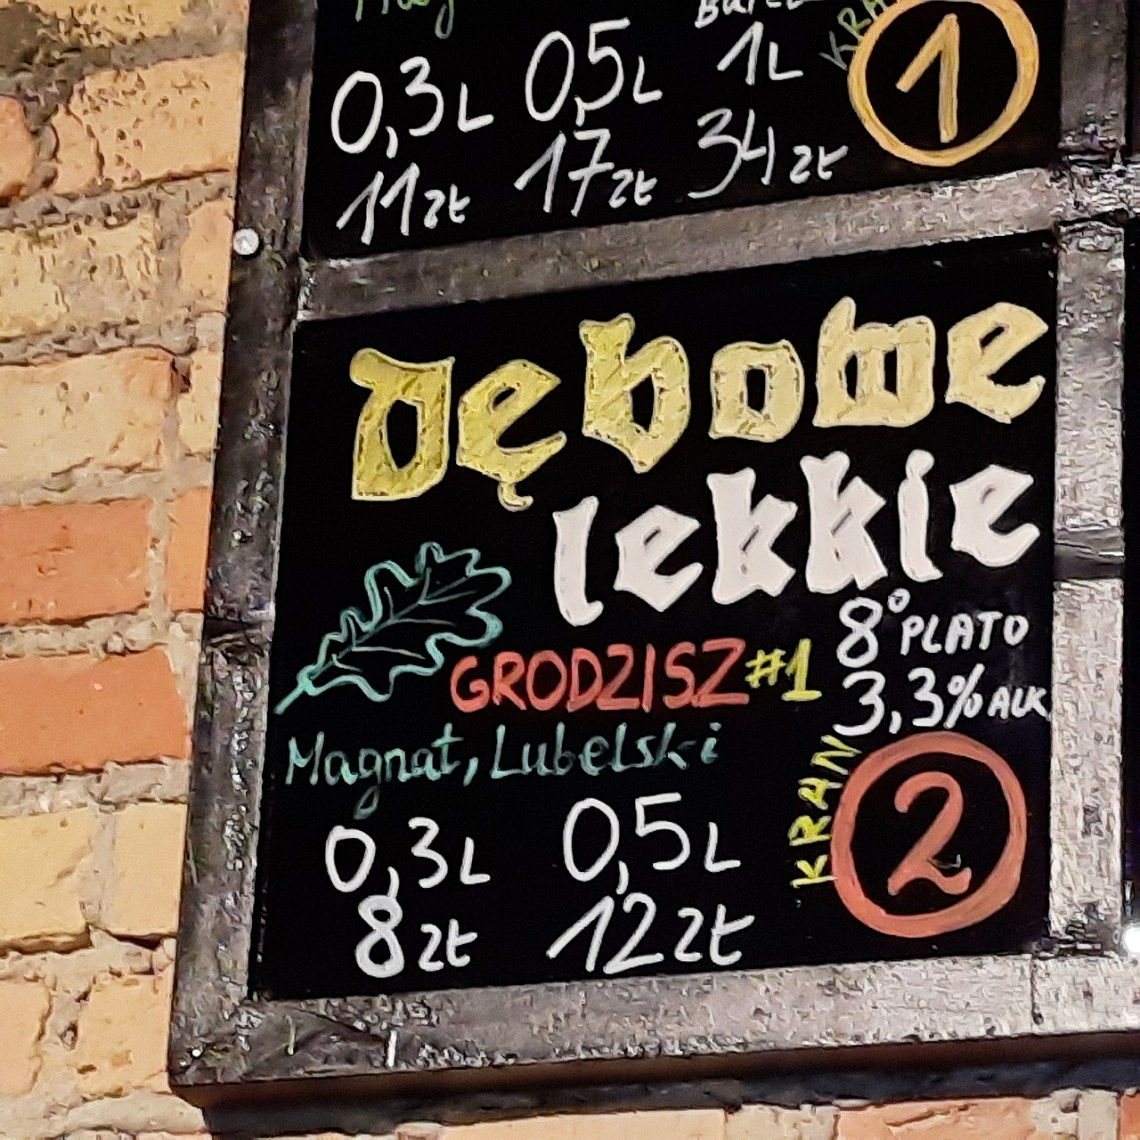 0,3L 0,5L 1L 1
11zł 17zł 34zł
Dębowe
lekkie
8° PLATO
GRODZISZ #1
3,3% ALK
Magnat, Lubelski
KRAN 2
0,3L 0,5L
8zł 12zł